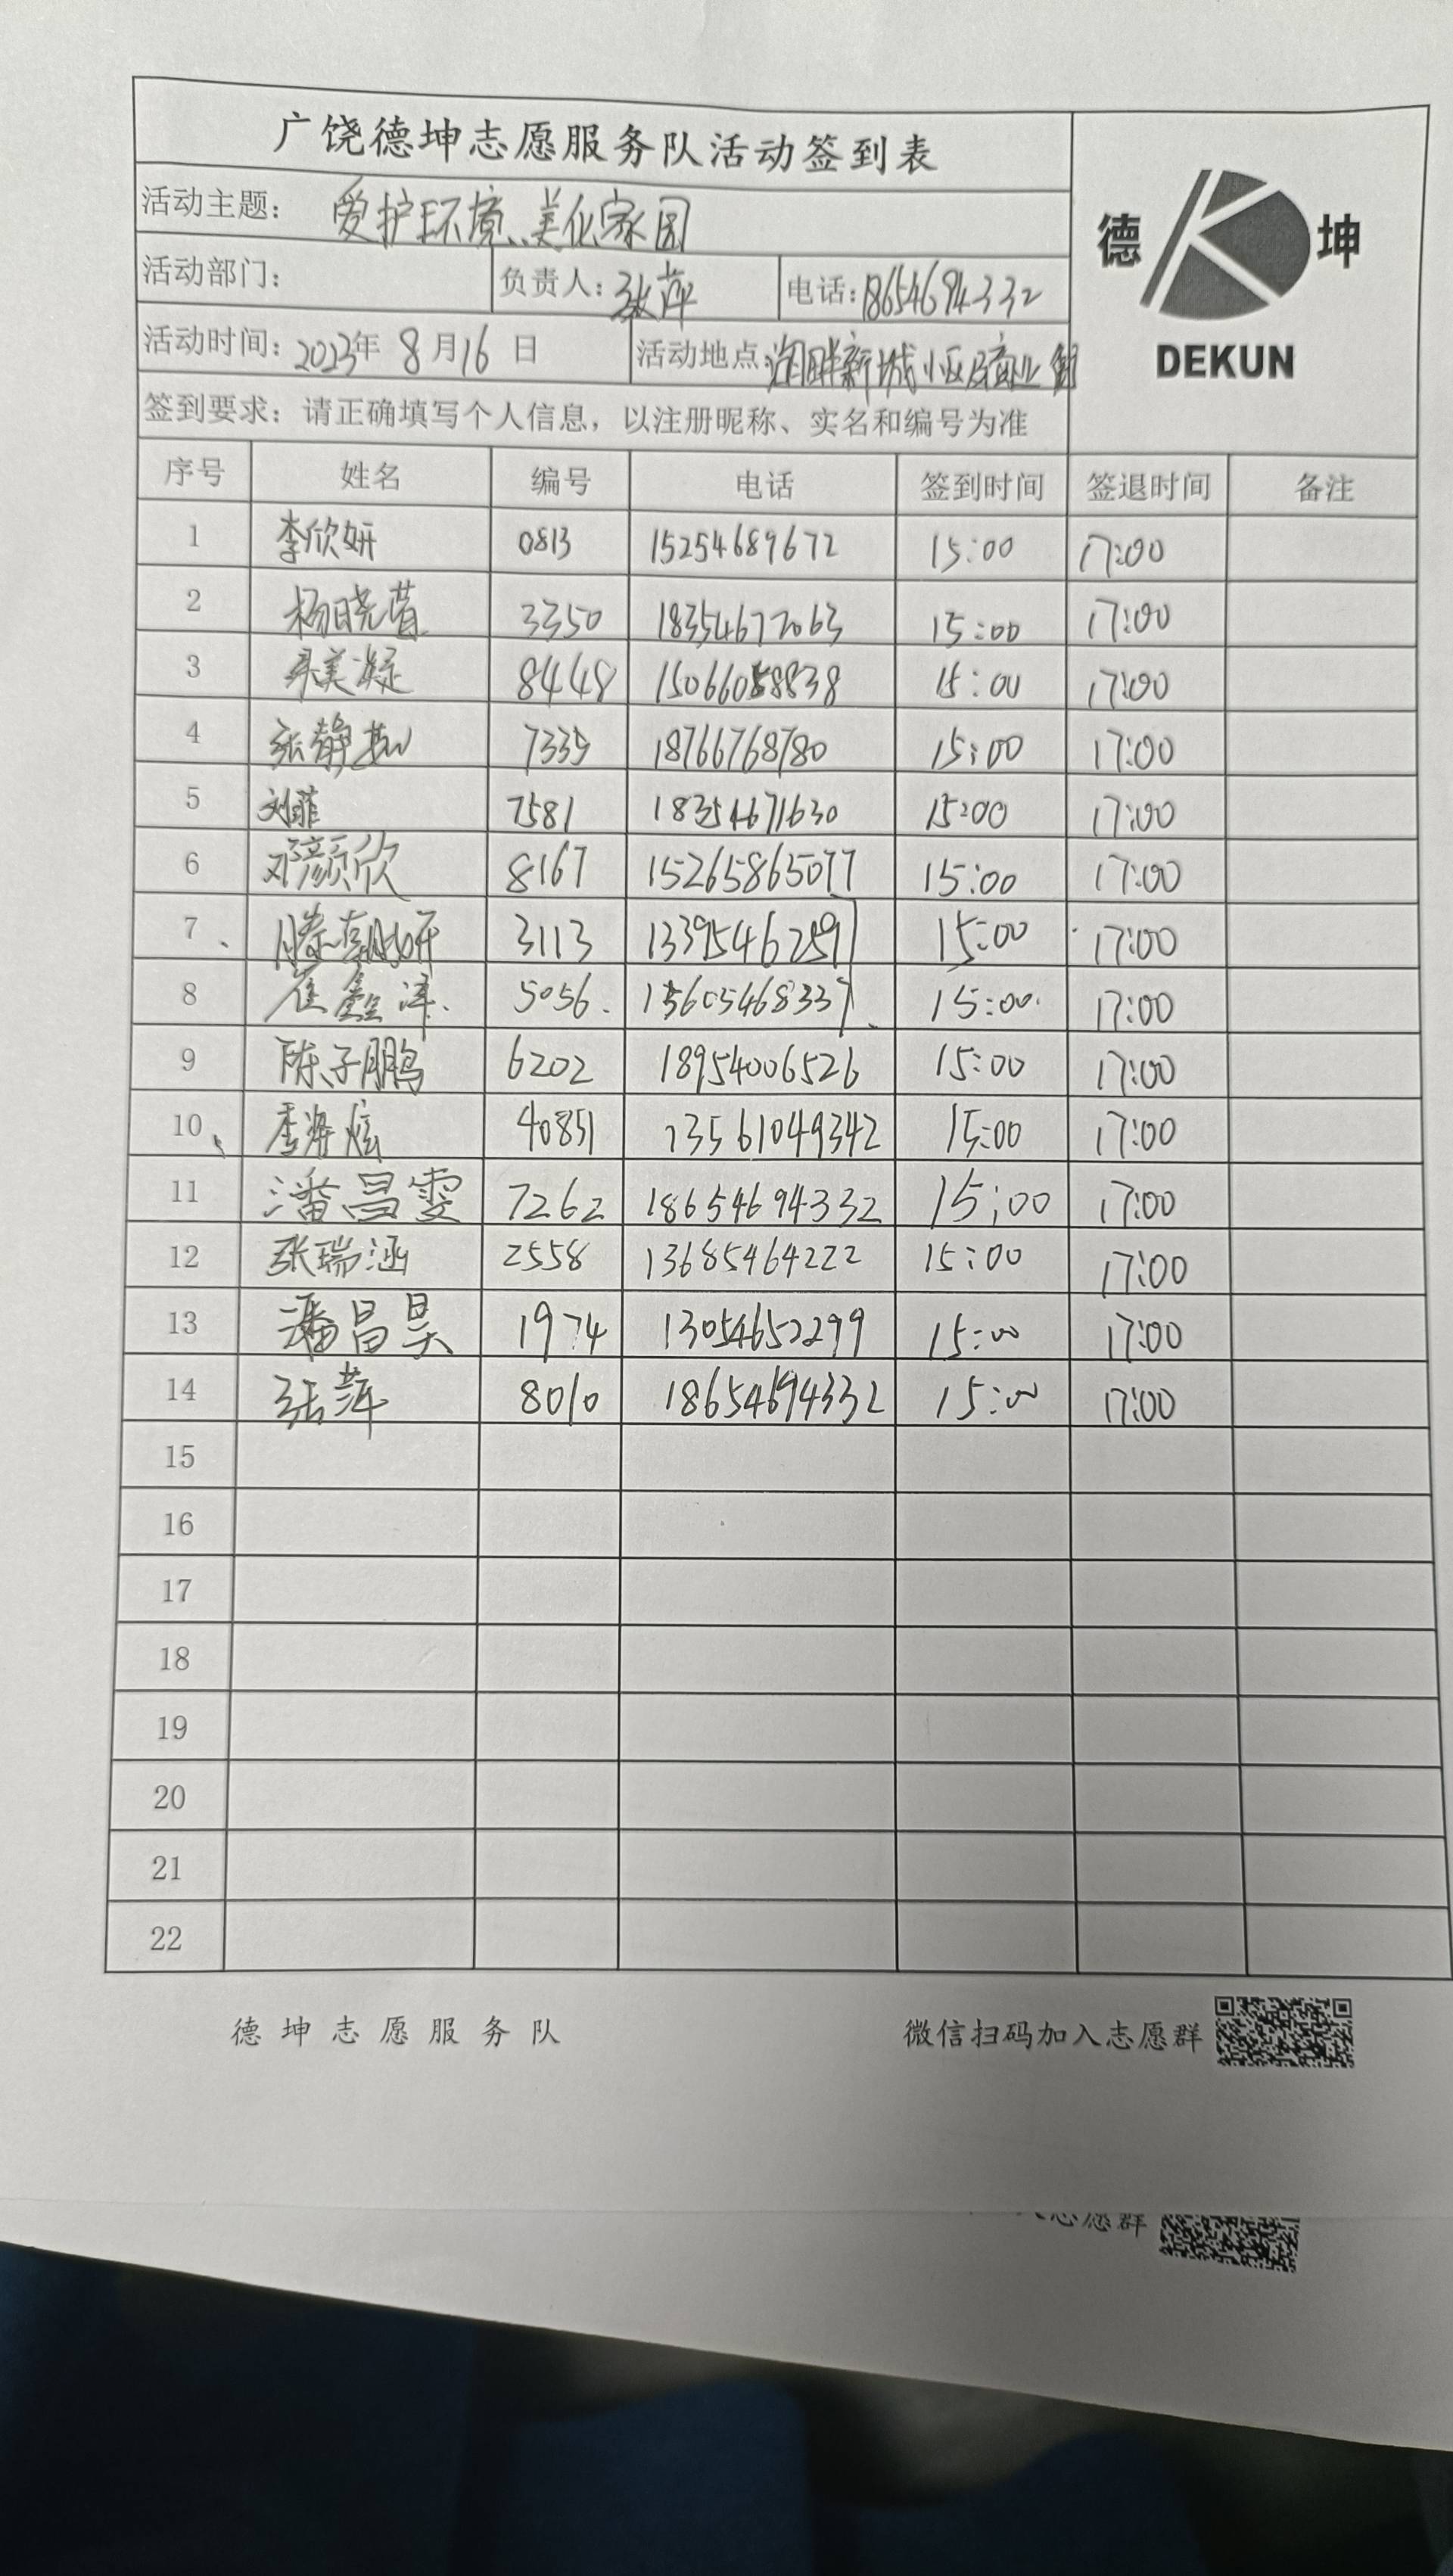 广饶德坤志愿服务队活动签到表
德 坤
DEKUN
活动主题: 爱护环境、美化家园
活动部门: 负责人: 张萍 电话: 18654694332
活动时间: 2023年 8月16日 活动地点: 新城小区及商业
签到要求: 请正确填写个人信息, 以注册昵称、实名和编号为准
序号 姓名 编号 电话 签到时间 签退时间 备注
1 李欣妍 0813 15254689672 15:00 17:00
2 杨晓萱 3350 18354677063 15:00 17:00
3 美凝 8448 15066058838 15:00 17:00
4 张静 7335 18766768780 15:00 17:00
5 刘菲 7581 18354671630 15:00 17:00
6 邓颜欣 8167 15265865077 15:00 17:00
7 滕朝妍 3113 13395462591 15:00 17:00
8 崔鑫泽 5056 15605468337 15:00 17:00
9 陈子鹏 6202 18954006526 15:00 17:00
10 李海炫 40851 13561049342 15:00 17:00
11 潘昌雯 7262 18654694332 15:00 17:00
12 张瑞涵 2558 13685464222 15:00 17:00
13 潘昌昊 1974 13054652299 15:00 17:00
14 张萍 8010 18654694332 15:00 17:00
15
16
17
18
19
20
21
22
德坤志愿服务队 微信扫码加入志愿群
志愿群